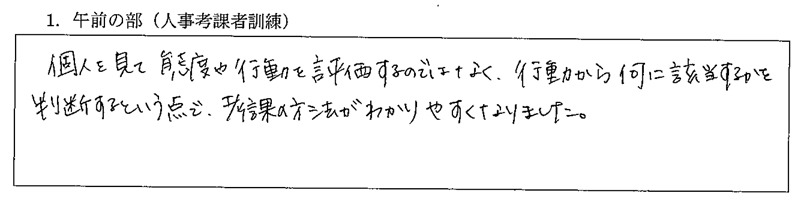 1. 午前の部（人事考課者訓練）
個人を見て態度や行動を評価するのではなく、行動から何に該当するかを
判断するという点で、考課の方法がわかりやすくなりました。